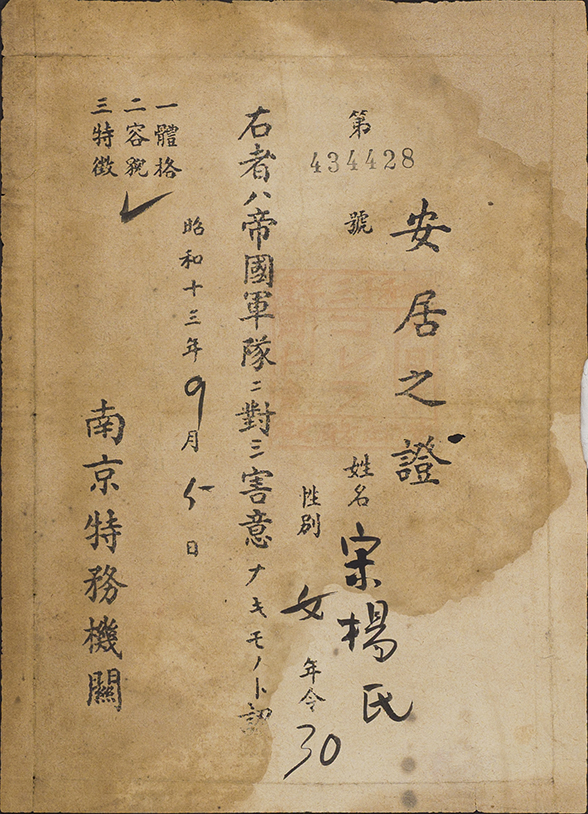 安居之證
第434428號
姓名 宋楊氏
性別 女 年令 30
右者ハ帝國軍隊ニ對シ害意ナキモノト認
昭和十三年9月5日
一體格
二容貌
三特徴
南京特務機關